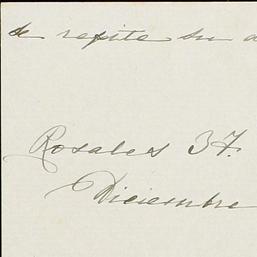 se repite su a
Rosales 37.
Diciembre